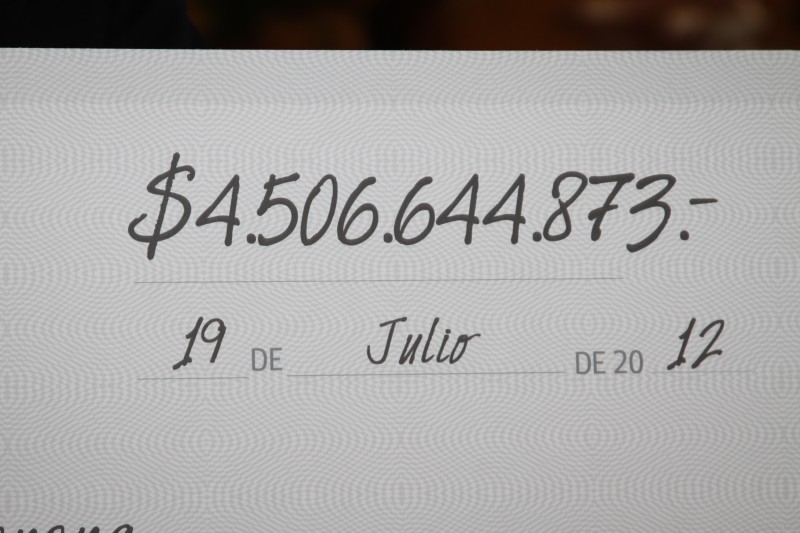 $4.506.644.873.-
19 DE Julio DE 20 12